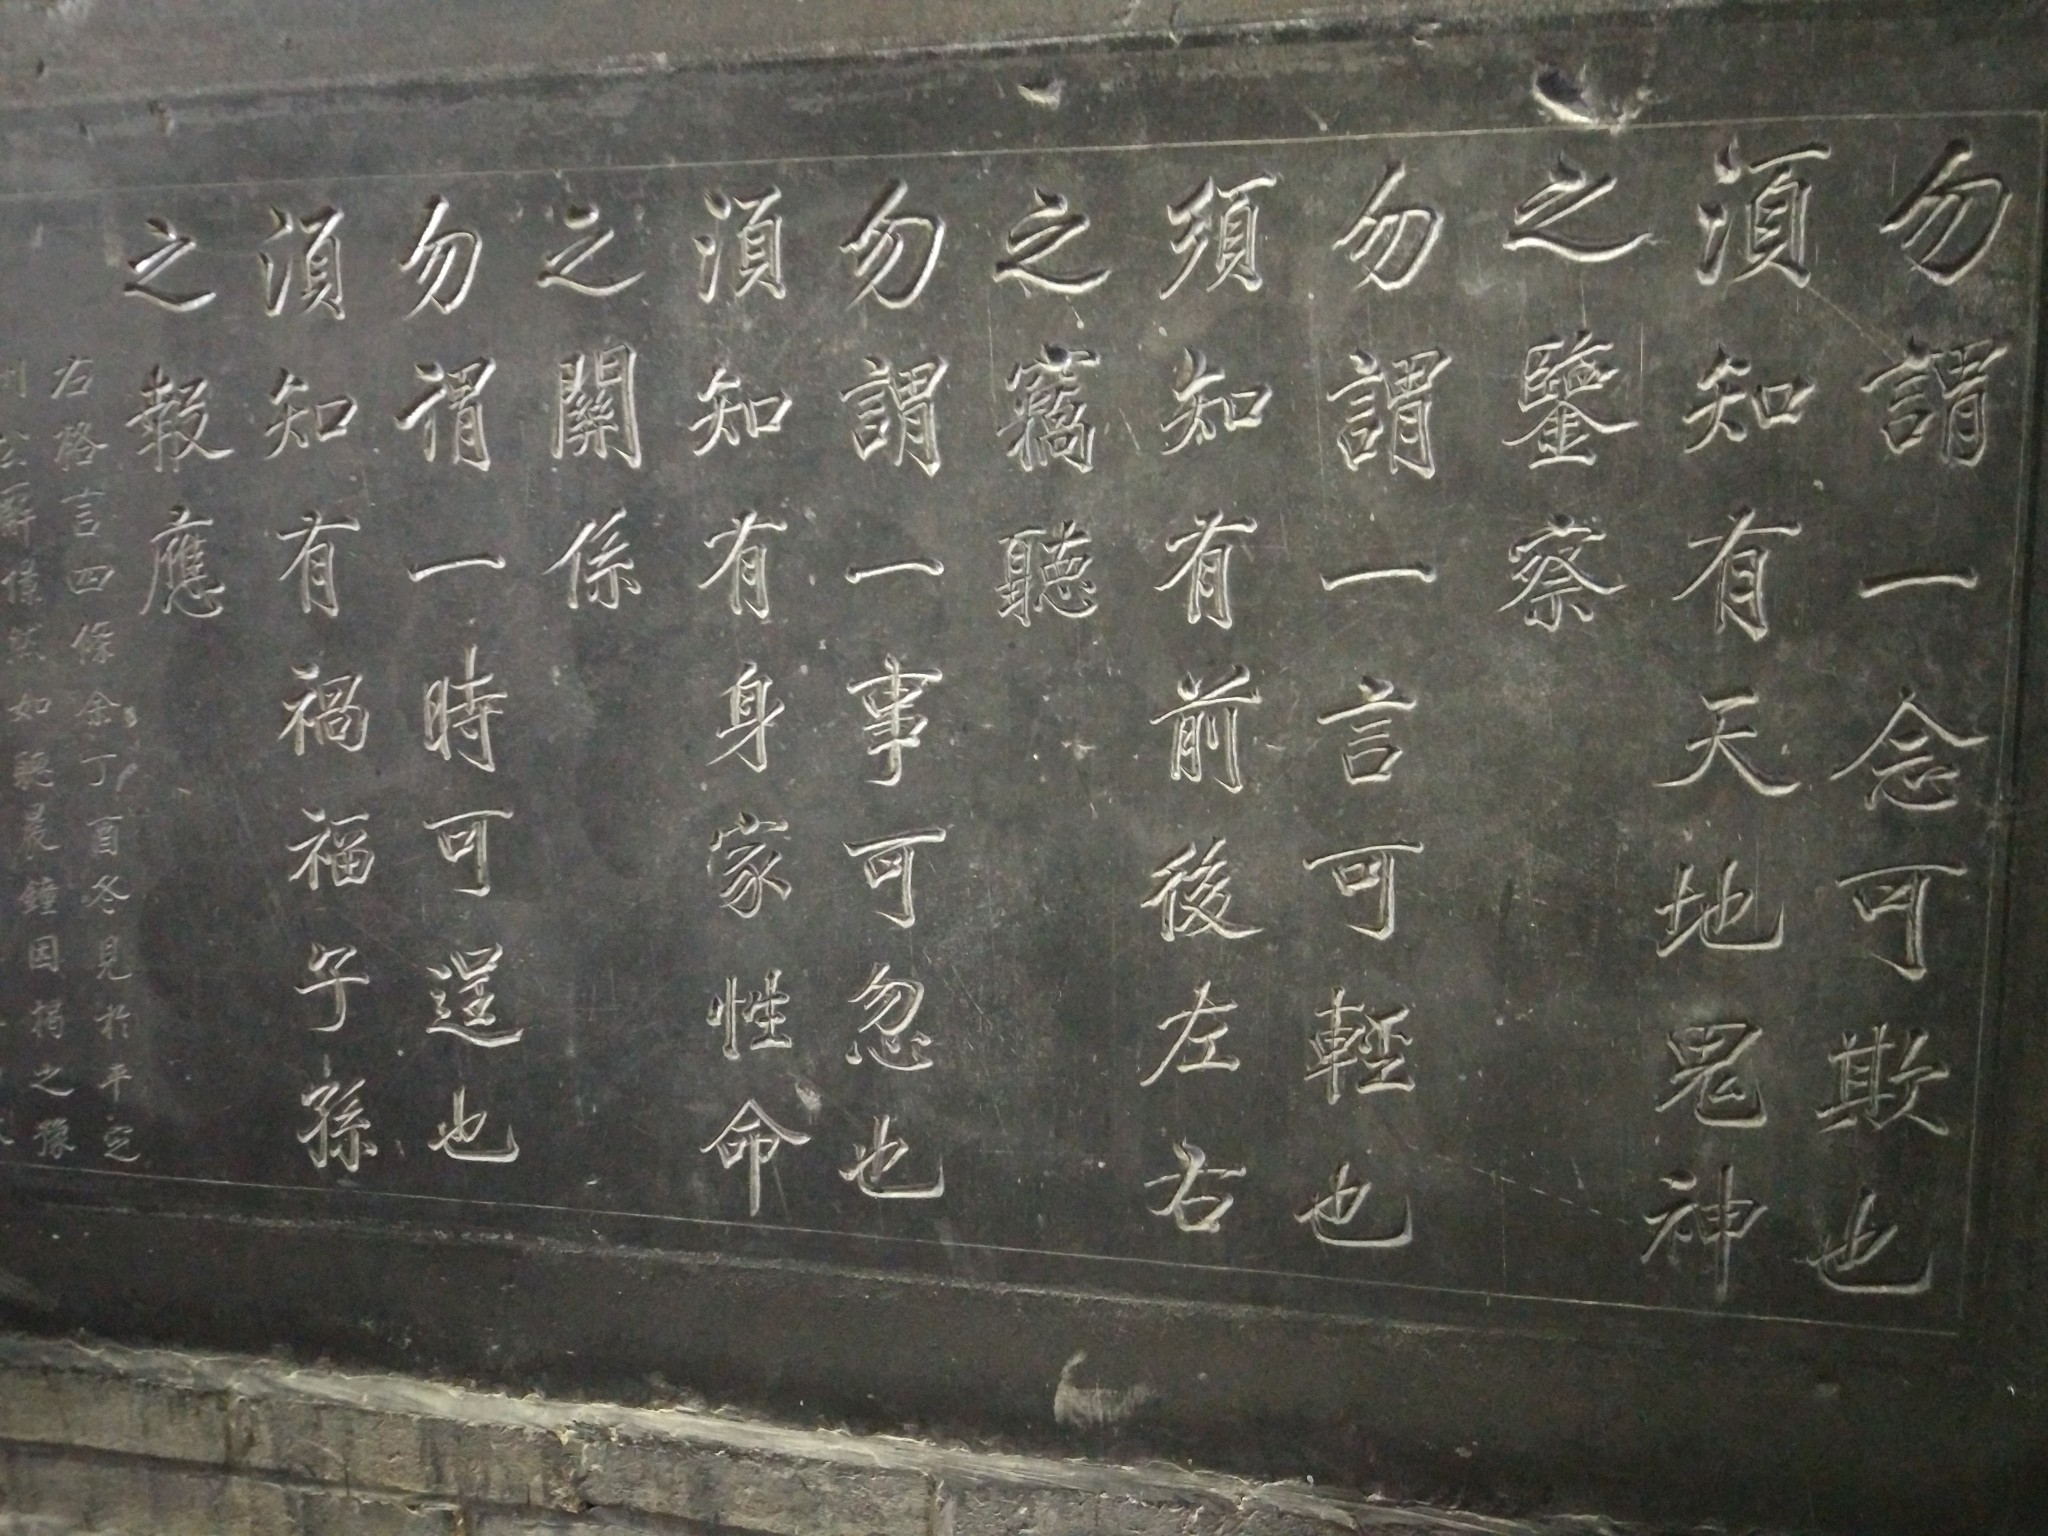 勿謂一念可欺也
湏知有天地鬼神
之鑒察
勿謂一言可輕也
須知有前後左右
之竊聽
勿謂一事可忽也
湏知有身家性命
之關係
勿謂一時可逞也
湏知有禍福子孫
之報應
右格言四條余丁酉冬見於平定
州公廨悚然如聽晨鐘因揭之豫